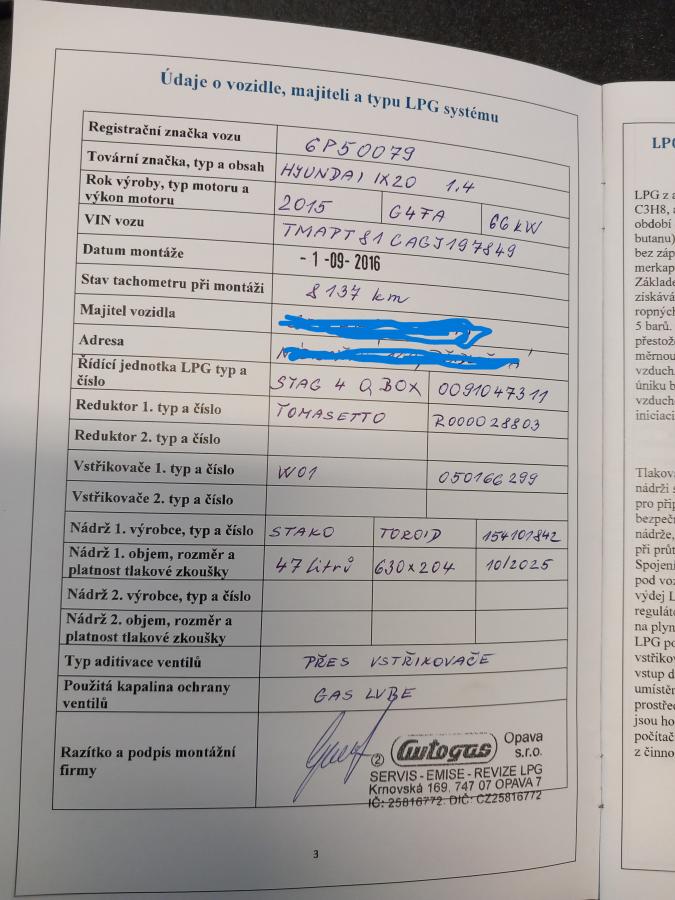 Údaje o vozidle, majiteli a typu LPG systému
Registrační značka vozu 6P50079
Tovární značka, typ a obsah HYUNDAI IX20 1.4
Rok výroby, typ motoru a
výkon motoru 2015 G4FA 66 kW
VIN vozu TMAPT81CAGJ197849
Datum montáže - 1 -09- 2016
Stav tachometru při montáži 8 137 km
Majitel vozidla
Adresa
Řídící jednotka LPG typ a
číslo STAG 4 Q BOX 0091047311
Reduktor 1. typ a číslo TOMASETTO R000028803
Reduktor 2. typ a číslo
Vstřikovače 1. typ a číslo W01 050166299
Vstřikovače 2. typ a číslo
Nádrž 1. výrobce, typ a číslo STAKO TOROID 154101842
Nádrž 1. objem, rozměr a
platnost tlakové zkoušky 47 litrů 630 x 204 10/2025
Nádrž 2. výrobce, typ a číslo
Nádrž 2. objem, rozměr a
platnost tlakové zkoušky
Typ aditivace ventilů PŘES VSTŘIKOVAČE
Použitá kapalina ochrany
ventilů GAS LUBE
Razítko a podpis montážní
firmy
② Autogas Opava
s.r.o.
SERVIS - EMISE - REVIZE LPG
Krnovská 169, 747 07 OPAVA 7
IČ: 25816772. DIČ: CZ25816772
3
LPG
LPG z a
C3H8, a
období
butanu)
bez záp
merkap
Základe
získává
ropných
5 barů.
přestože
měrnou
vzduch.
úniku b
vzducho
iniciaci
Tlakova
nádrži s
pro přip
bezpečn
nádrže,
při průt
Spojení
pod voz
výdej L
reguláto
na plyn
LPG po
vstřikov
vstup d
umístěn
prostřed
jsou ho
počítač
z činno